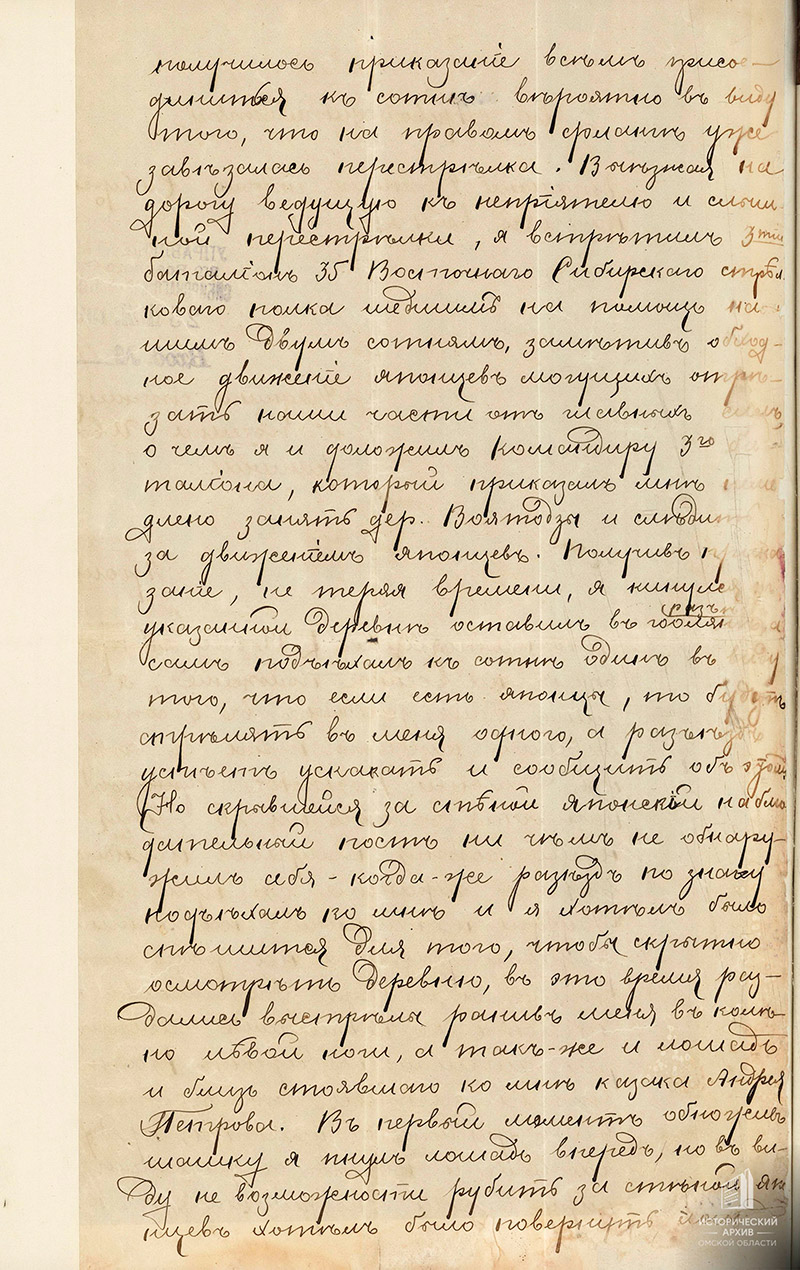 получилось приказанiе всѣмъ присо-
динится къ сотнѣ вѣроятно въ виду
того, что на правомъ флангѣ уже
завѣзалась перестрѣлка. Выѣзжая на
дорогу ведущую къ непрiятелю и силь
ной перестрѣлки, я встрѣтилъ 3тiй
баталiонъ 35 Восточнаго Сибирскаго стрѣл
коваго полка шедшiмъ на помощь на
шимъ двумъ сотнямъ, замѣтивъ обход-
ное движенiе японцевъ могущихъ отрѣ-
зать наши части отъ главныхъ силъ
о чемъ я и доложилъ командиру 3го
талiона, который приказалъ мнѣ
длено занять дер. Воятодзы и слѣдить
за движенiемъ японцевъ. Получивъ
занiе, не теряя времени, я кинулся
указанной деревнѣ оставилъ въ разъ
самъ подъѣхалъ къ сотнѣ одинъ въ виду
того, что если есть японцы, то будутъ
стрѣлять въ меня одного, а разъѣздъ
успѣетъ ускакать и сообщить объ этомъ
Но скрывшейся за стѣной японскiй наблю
дательный постъ ни чѣмъ не обнару-
жилъ себя - когда-же разъѣздъ по знаку
подъѣхалъ ко мнѣ и я хотѣлъ было
спѣшится для того, чтобы скрытно
осмотрѣть деревню, въ это время раз-
дались выстрѣлы ранивъ меня въ колѣ-
но лѣвой ноги, а такъ-же и лошадь
и близъ стоявшаго ко мнѣ казака Андрея
Петрова. Въ первый моментъ обноживъ
шашку я пнулъ лошадь впередъ, но въ ви-
ду не возможности рубить за стѣной япо
нцевъ хотѣлъ было повернуть
ИСТОРИЧЕСКИЙ
АРХИВ
ОМСКОЙ ОБЛАСТИ